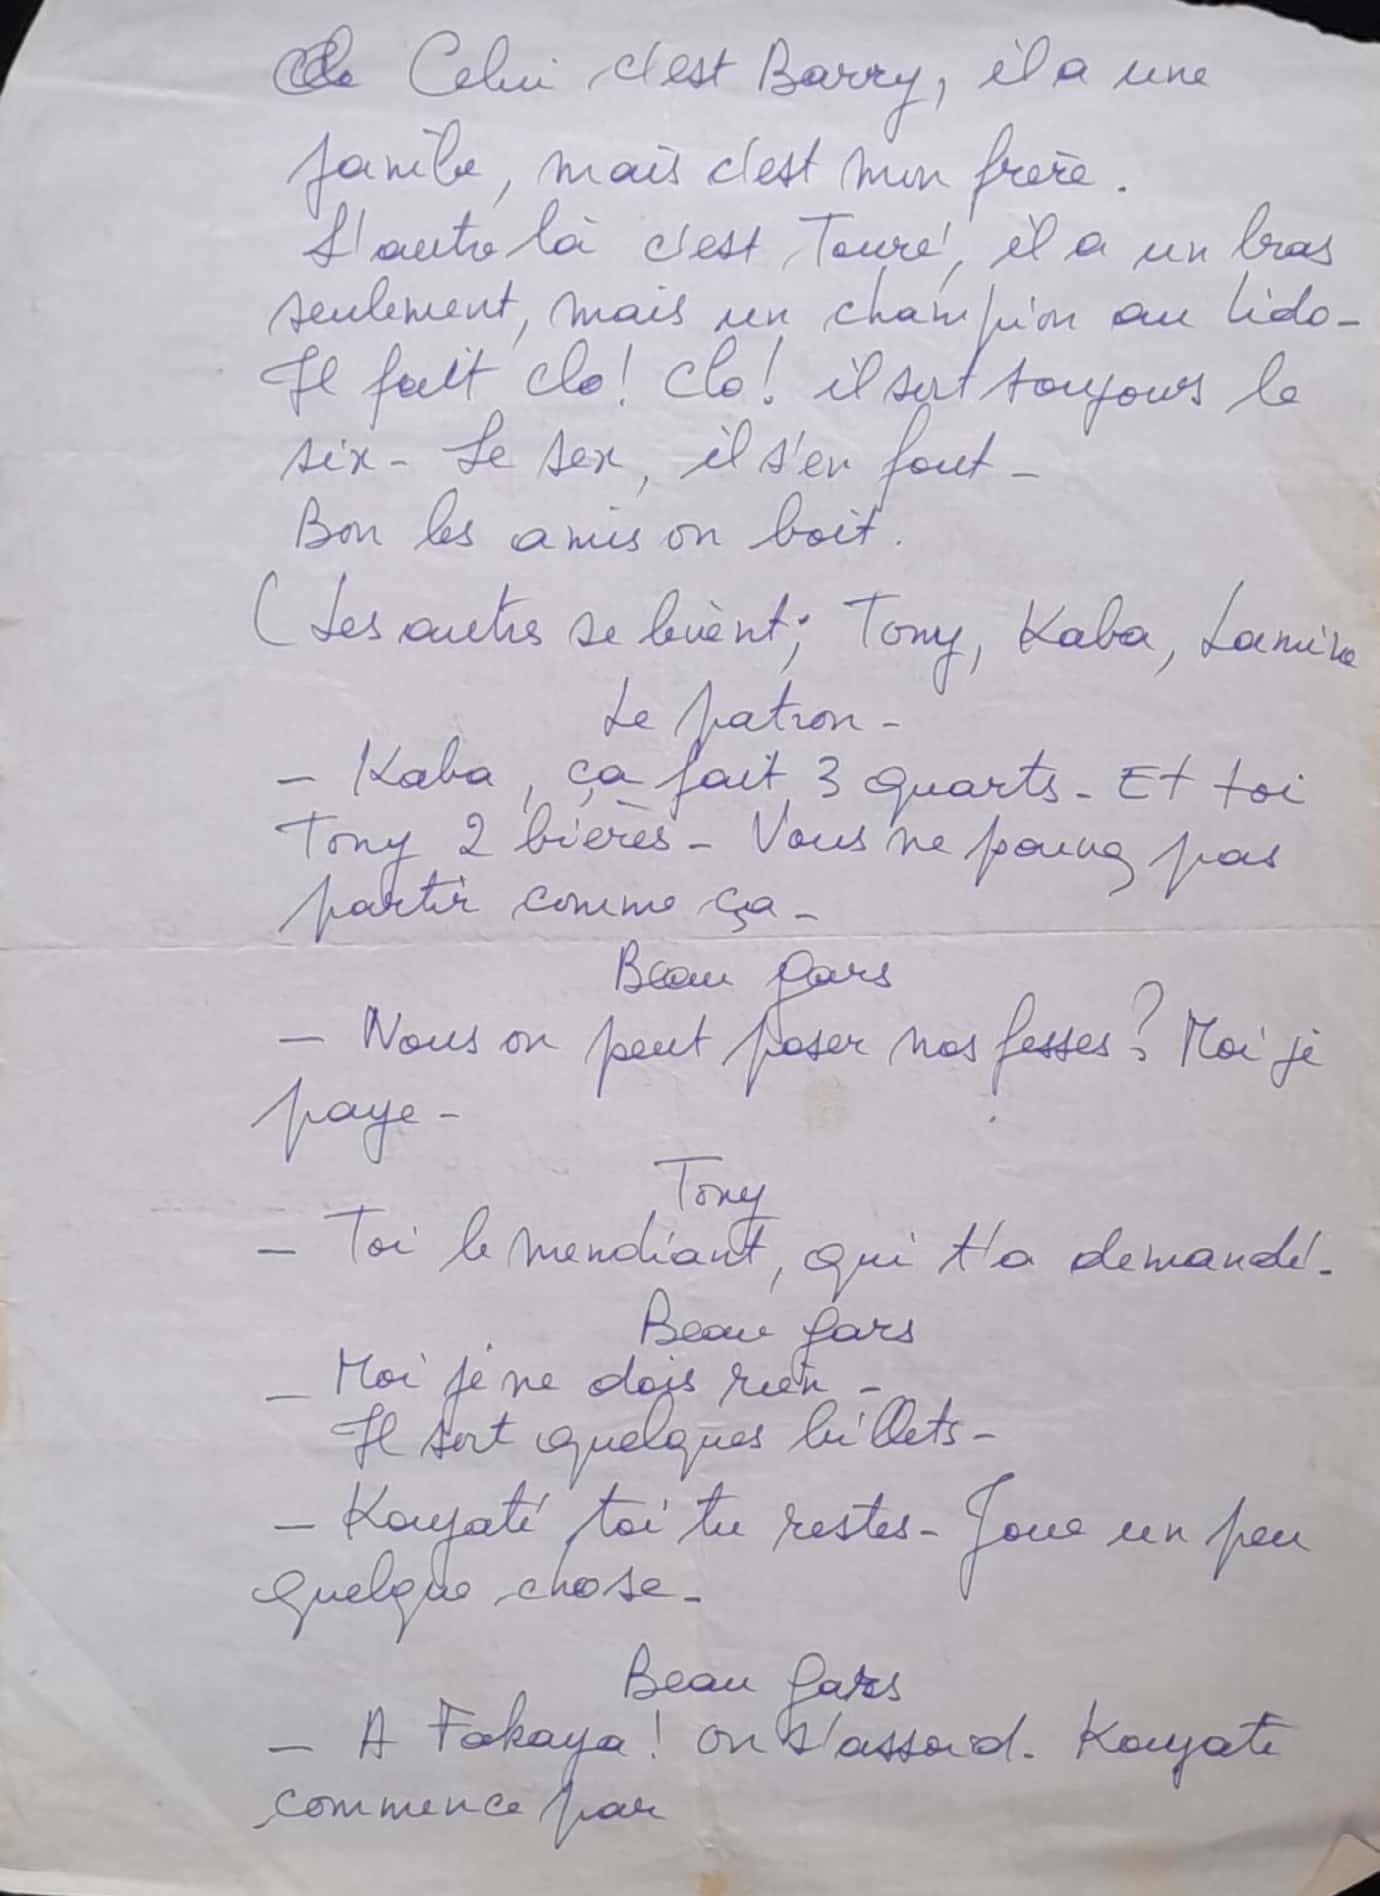 Celui c'est Barry, il a une
jambe, mais c'est mon frère.
L'autre là c'est Touré, il a un bras
seulement, mais un champion au lido -
Il fait clo! clo! il sort toujours le
six - Le sex, il s'en fout -
Bon les amis on boit.
( Les autres se lèvent; Tony, Kaba, Lamine
Le patron -
- Kaba, ça fait 3 quarts - Et toi
Tony 2 bières - Vous ne pouvez pas
partir comme ça -
Beau gars
- Nous on peut poser nos fesses? Moi je
paye -
Tony
- Toi le mendiant, qui t'a demandé -
Beau gars
- Moi je ne dois rien -
Il sort quelques billets -
- Kouyaté toi tu restes - Joue un peu
quelque chose -
Beau gars
- A Fakaya! on s'assoid. Kouyaté
commence par